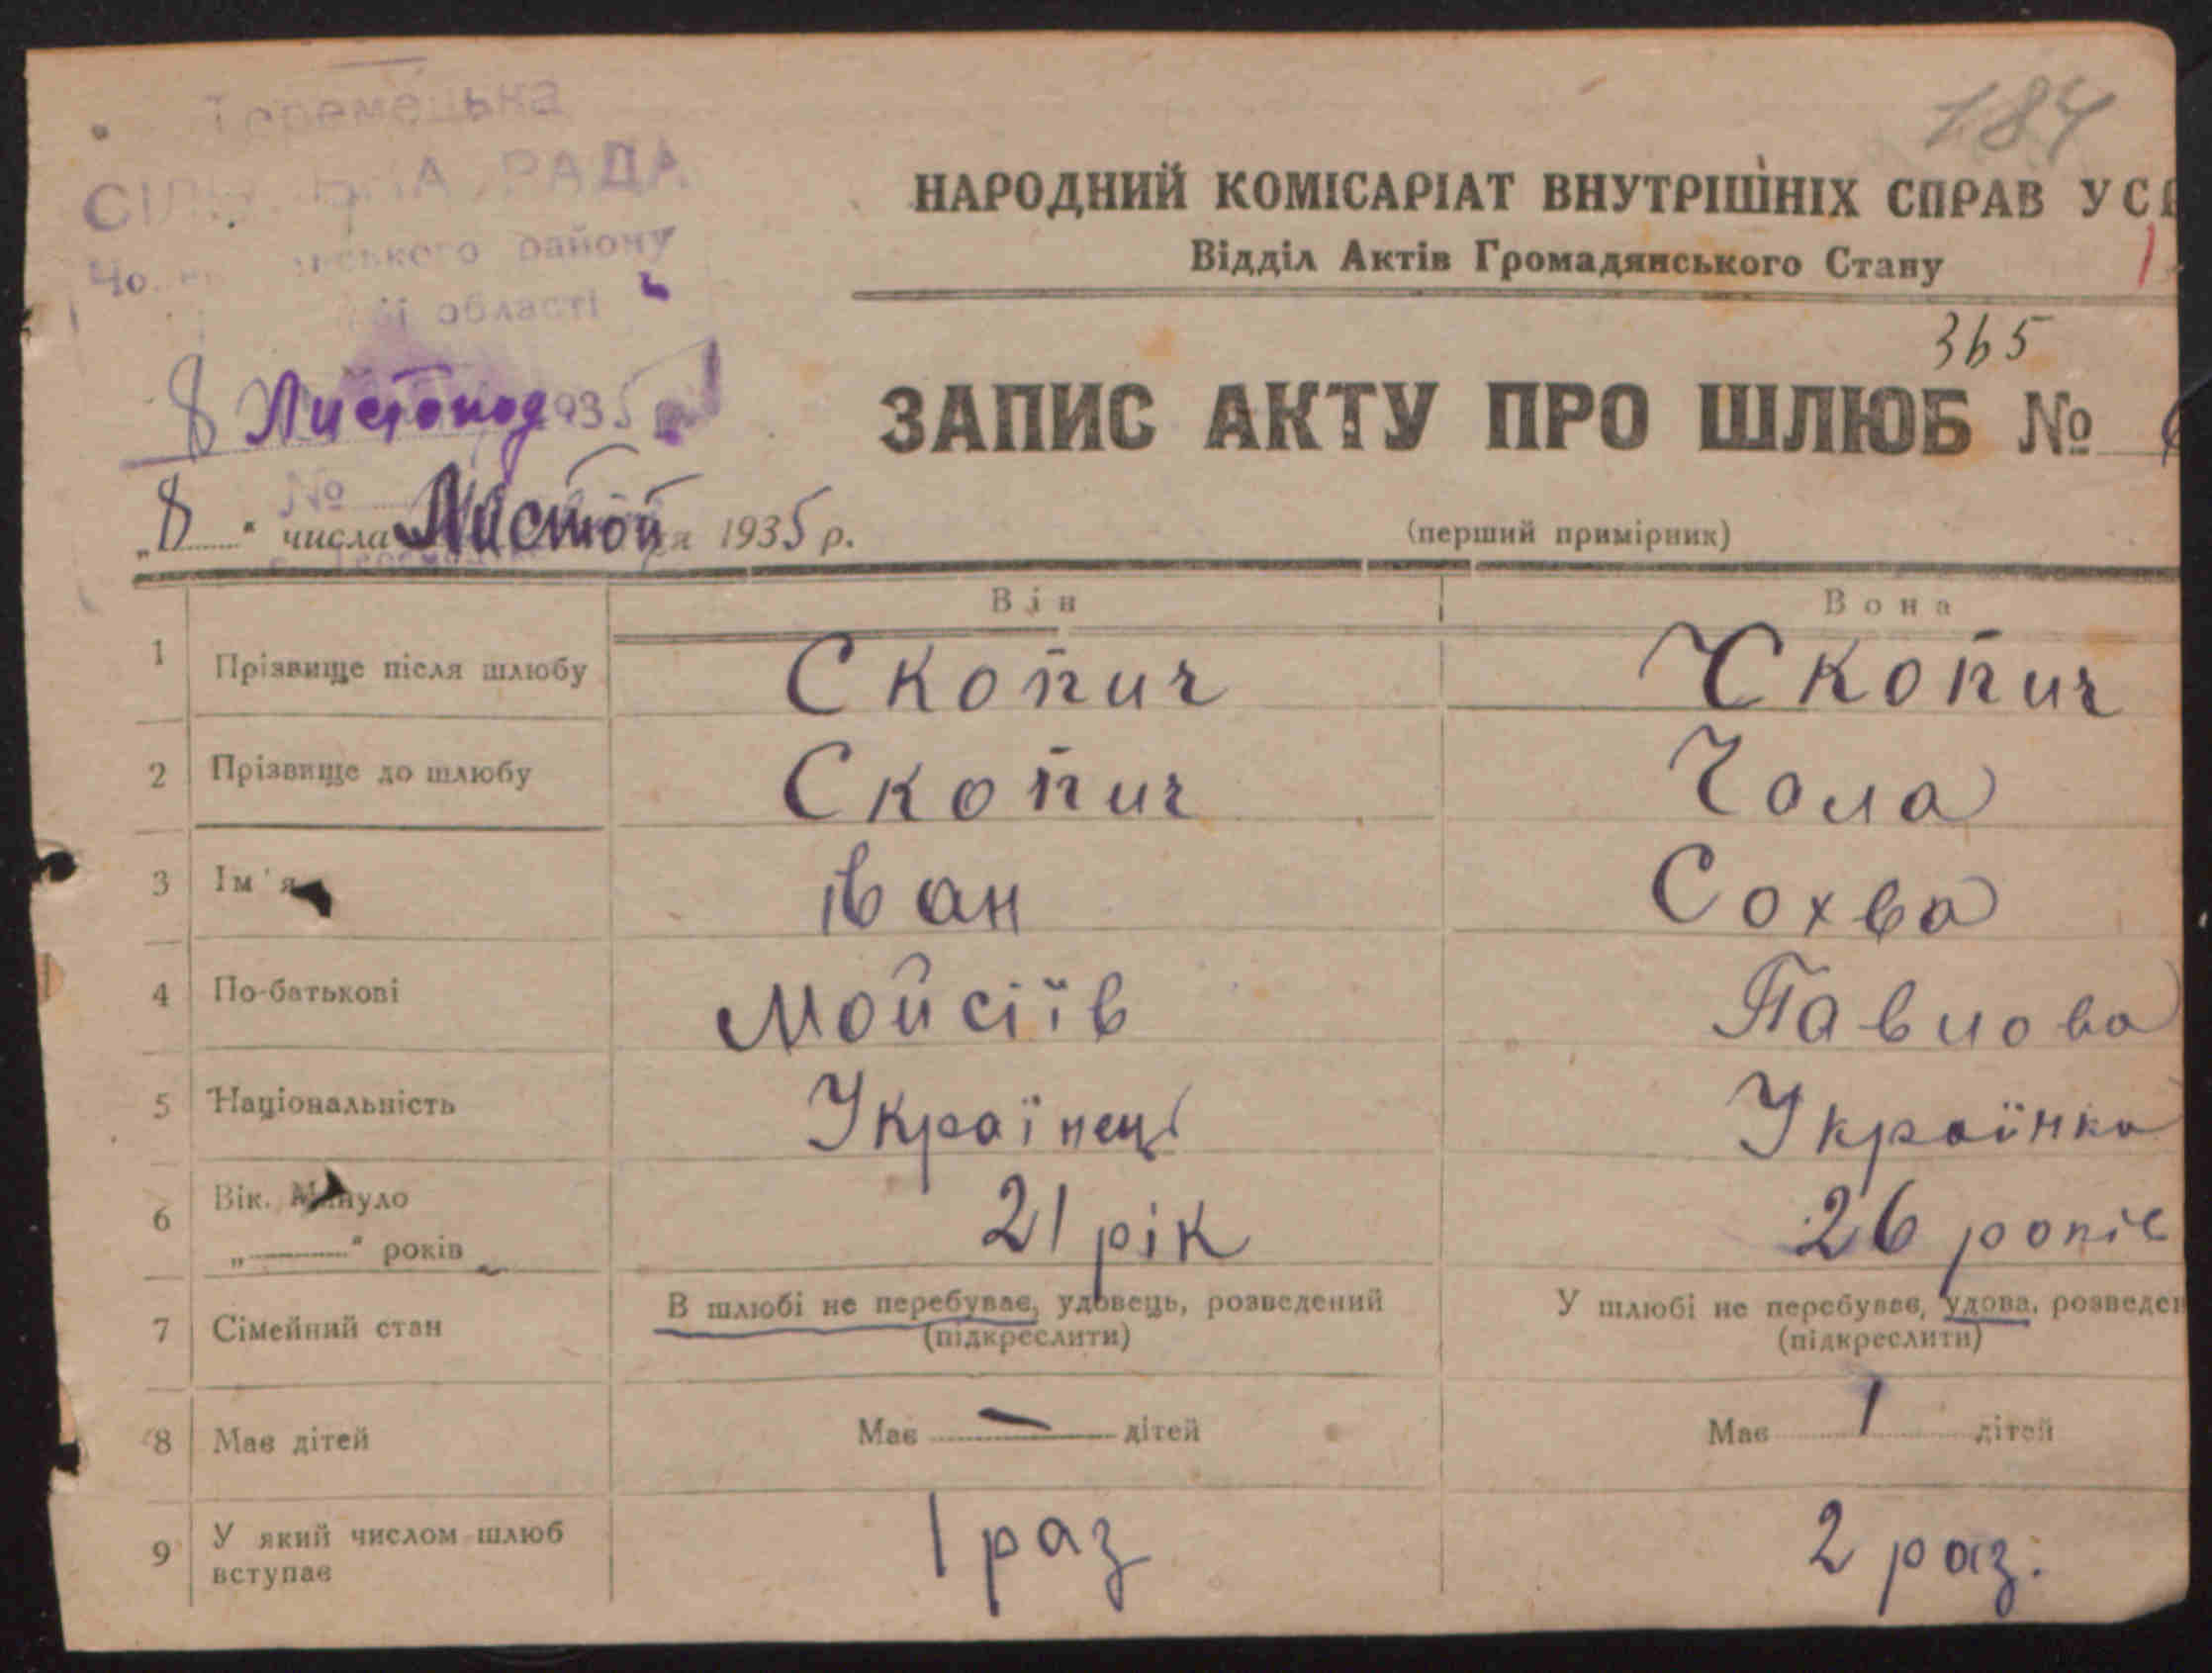 Теремецька
СІЛЬСЬКА РАДА
району
області
184
НАРОДНИЙ КОМІСАРІАТ ВНУТРІШНІХ СПРАВ УС
Відділ Актів Громадянського Стану
365
8 Листопад 1935
ЗАПИС АКТУ ПРО ШЛЮБ №
№
„8" числа Листоп 1935 р.
(перший примірник)
Він Вона
1 Прізвище після шлюбу Скопич Скопич
2 Прізвище до шлюбу Скопич Чола
3 Ім'я іван Сохва
4 По-батькові Мойсіїв Павлова
5 Національність Українець Українка
6 Вік. Минуло
„ " років 21 рік 26 років
7 Сімейний стан В шлюбі не перебуває, удовець, розведений У шлюбі не перебуває, удова, розведен
(підкреслити) (підкреслити)
8 Має дітей Має — дітей Має 1 дітей
9 У який числом шлюб
вступає 1 раз 2 раз.